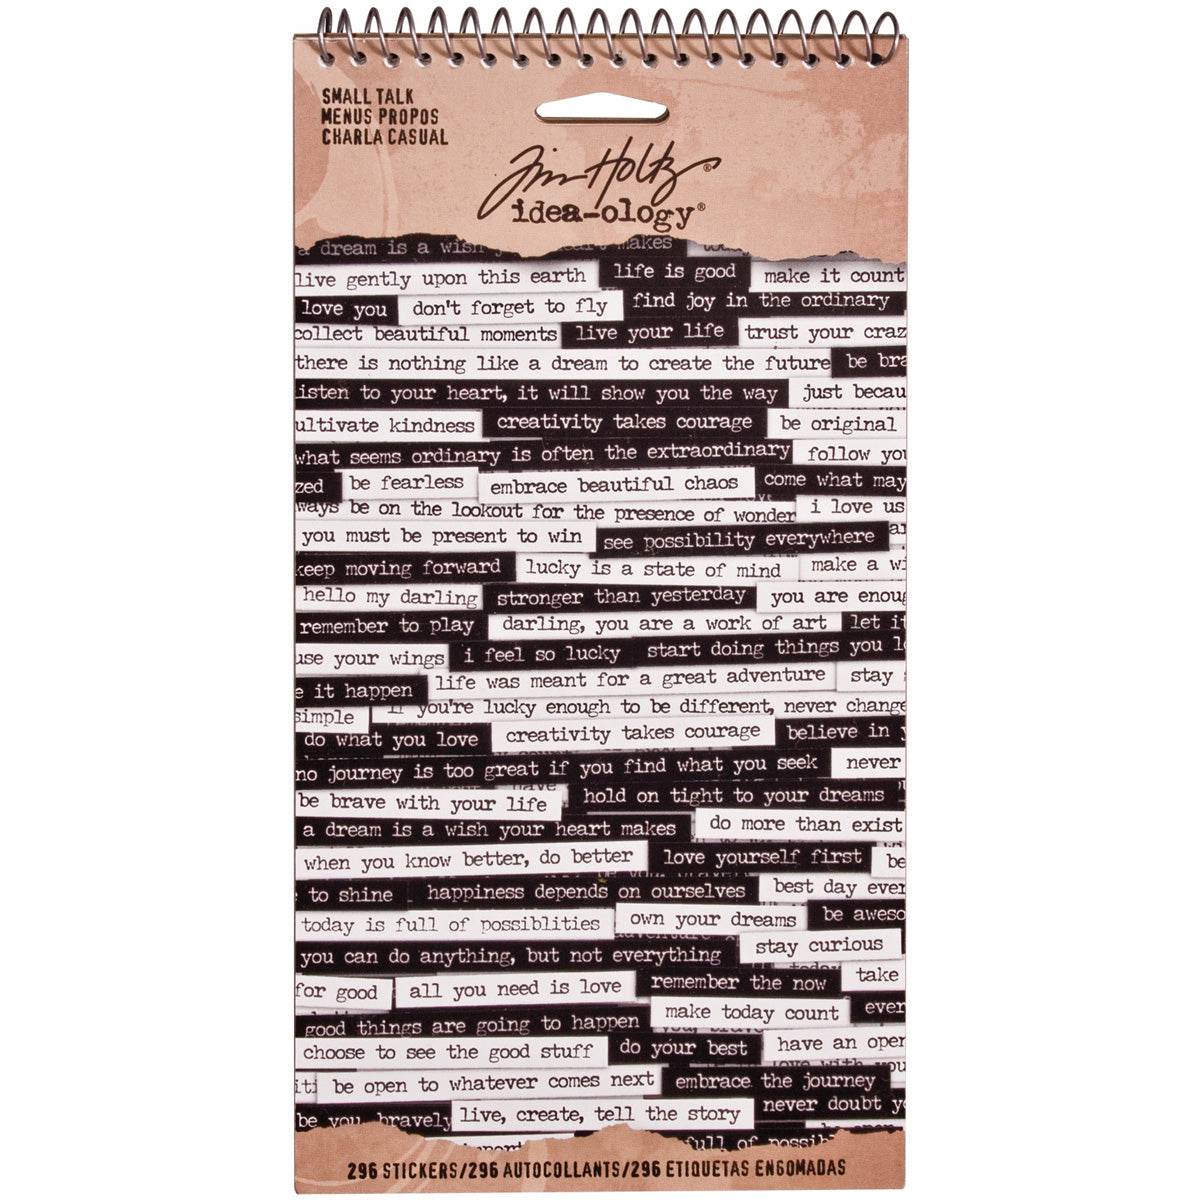 SMALL TALK
MENUS PROPOS
CHARLA CASUAL
Tim Holtz®
idea-ology®
a dream is a wish makes
live gently upon this earth life is good make it count
love you don't forget to fly find joy in the ordinary
collect beautiful moments live your life trust your craz
there is nothing like a dream to create the future be bra
listen to your heart, it will show you the way just becau
ultivate kindness creativity takes courage be original
what seems ordinary is often the extraordinary follow you
zed be fearless embrace beautiful chaos come what may
ways be on the lookout for the presence of wonder i love us
you must be present to win see possibility everywhere
keep moving forward lucky is a state of mind make a wi
hello my darling stronger than yesterday you are enoug
remember to play darling, you are a work of art let it
use your wings i feel so lucky start doing things you lo
e it happen life was meant for a great adventure stay
simple if you're lucky enough to be different, never change
do what you love creativity takes courage believe in y
no journey is too great if you find what you seek never
be brave with your life hold on tight to your dreams
a dream is a wish your heart makes do more than exist
when you know better, do better love yourself first be
to shine happiness depends on ourselves best day ever
today is full of possiblities own your dreams be aweso
you can do anything, but not everything stay curious
for good all you need is love remember the now take
make today count ever
good things are going to happen
choose to see the good stuff do your best have an open
iti be open to whatever comes next embrace the journey
be you, bravely live, create, tell the story never doubt y
full of possibl
296 STICKERS/296 AUTOCOLLANTS/296 ETIQUETAS ENGOMADAS